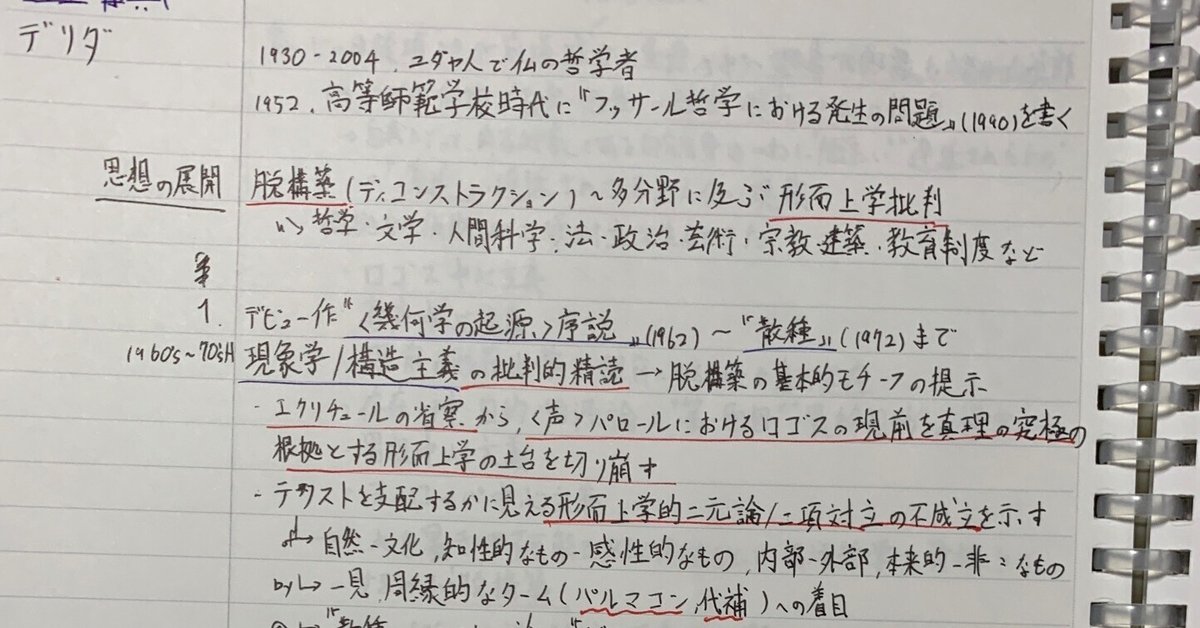 デリダ
1930-2004. ユダヤ人で仏の哲学者
1952. 高等師範学校時代に『フッサール哲学における発生の問題』(1990)を書く
思想の展開 脱構築(ディコンストラクション)～多分野に及ぶ形而上学批判
↳ 哲学・文学・人間科学・法・政治・芸術・宗教・建築・教育制度など
1. デビュー作『〈幾何学の起源〉序説』(1962)～『散種』(1972)まで
1960's~70's 現象学/構造主義の批判的精読→脱構築の基本的モチーフの提示
・エクリチュールの省察から、〈声〉パロールにおけるロゴスの現前を真理の究極の
根拠とする形而上学の土台を切り崩す
- テクストを支配するかに見える形而上学的二元論/二項対立の不成立を示す
↳ 自然-文化, 知性的なもの-感性的なもの, 内部-外部, 本来的-非〃なもの
by↳ 一見, 周縁的なターム(パルマコン, 代補)への着目
『散種